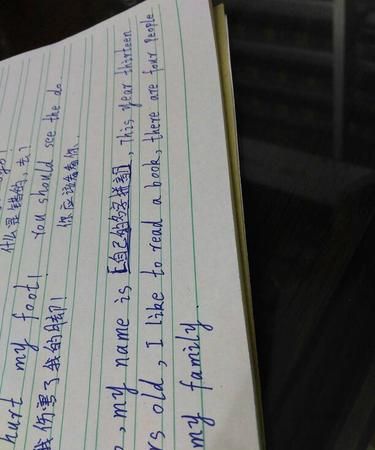 什么是错的,去?
hurt my foot! You should see the do.
我伤害了我的脚! 你应该看看你.
, my name is [自己的名字拼音], This year thirteen
rs old, I like to read a book, there are four people
my family.